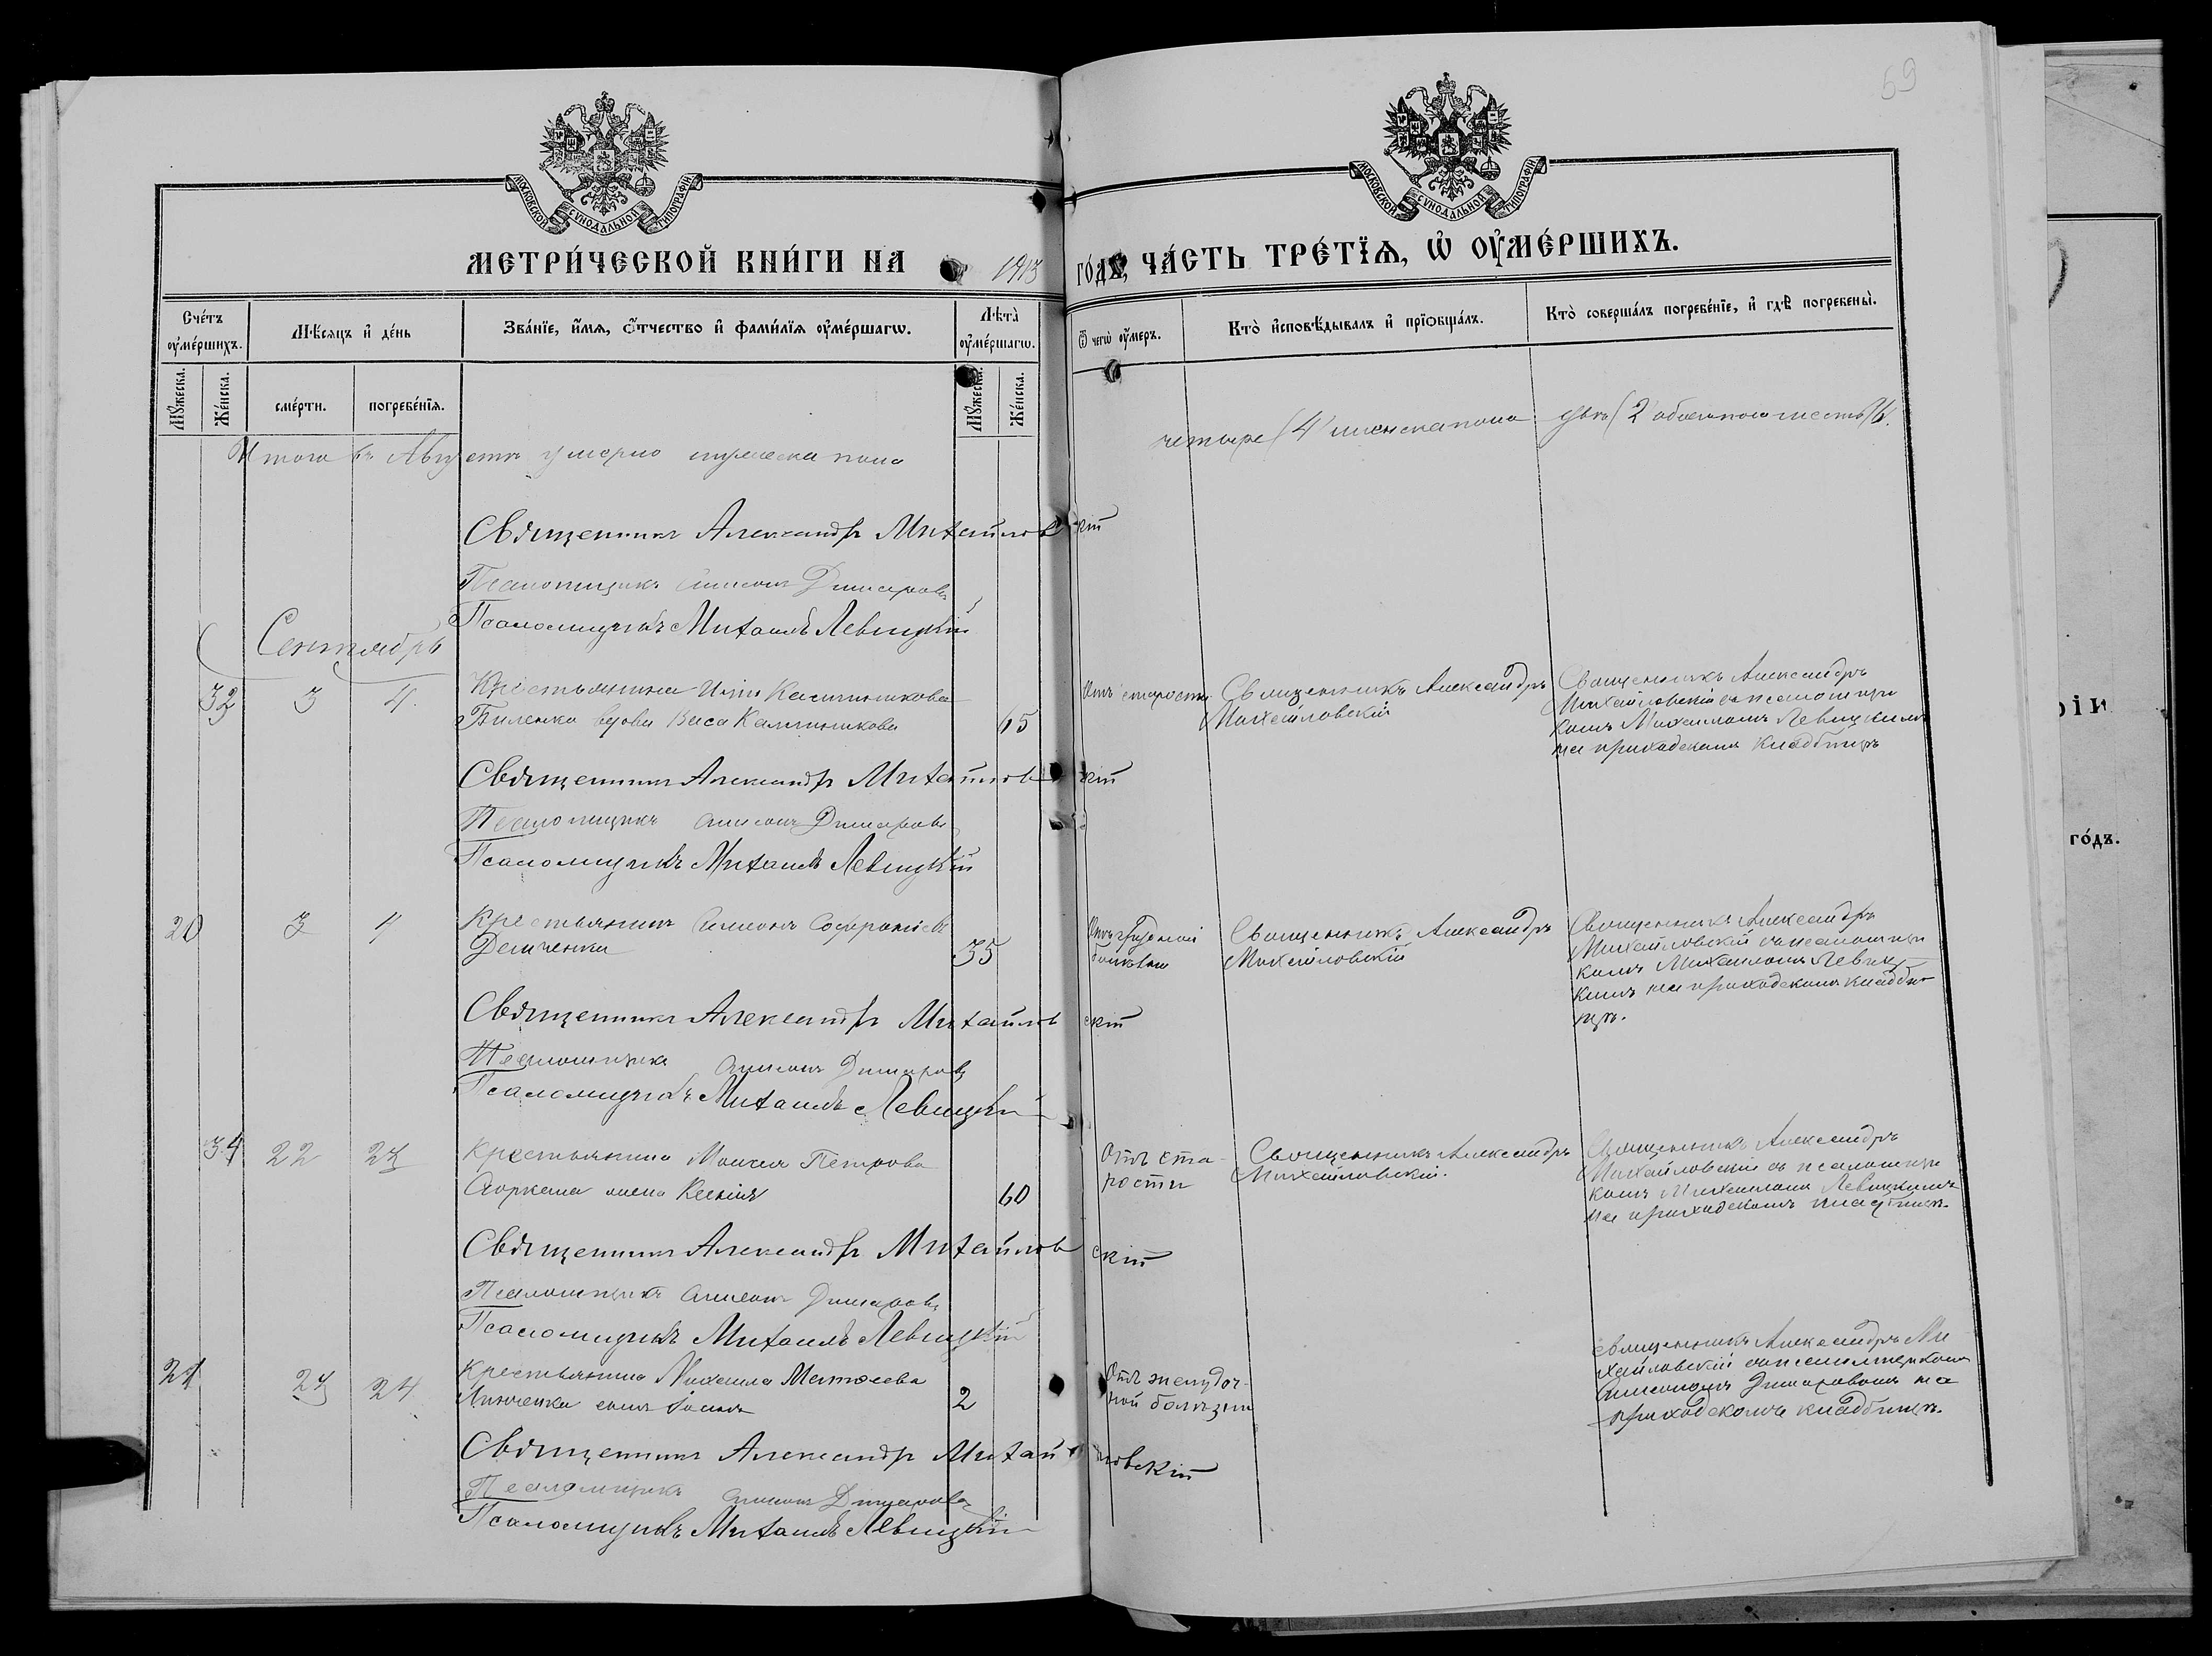 69
МОСКОВСКОЙ СѴНОДАЛЬНОЙ ТИПОГРАФІИ
МОСКОВСКОЙ СѴНОДАЛЬНОЙ ТИПОГРАФІИ
МЕТРИ́ЧЕСКОЙ КНИ́ГИ НА 1913 ГО́ДЪ, ЧА́СТЬ ТРЕ́ТЇѦ, Ѡ҆ ОУ҆МЕ́РШИХЪ.
Сче́тъ оу҆ме́ршихъ.
Мѣ́сяцъ и҆ де́нь
Зва́нїе, и҆́мя, ѻ҆́тчество и҆ фами́лїя оу҆ме́ршагѡ.
Лѣта̀ оу҆ме́ршагѡ.
Ѿ чегѡ̀ оу҆́меръ.
Кто̀ и҆сповѣ́дывалъ и҆ прїѻбща́лъ.
Кто̀ соверша́лъ погребе́нїе, и҆ гдѣ̀ погребены̀.
Мꙋ́жеска.
Же́нска.
сме́рти.
погребе́нїя.
Мꙋ́жеска.
Же́нска.
Итого въ Августѣ умерло мужеска пола четыре (4) женска пола два (2) обоего пола шесть (6).
Священникъ Александръ Михайловскій
Псаломщикъ Симеонъ
Псаломщикъ Михаилъ Левицкій
Сентябрь
32 3 4.
Крестьянина
Биленко вдова Васса Калинникова 65
Отъ старости
Священникъ Александръ
Михайловскій
Священникъ Александръ
Михайловскій съ псаломщи
комъ Михаиломъ Левицкимъ
на приходскомъ кладбищѣ
Священникъ Александръ Михайловскій
Псаломщикъ Симеонъ
Псаломщикъ Михаилъ Левицкій
20 3 4
Крестьянинъ Симеонъ Софроніевъ
Демченко 35
Отъ грудной
болѣзни
Священникъ Александръ
Михайловскій
Священникъ Александръ
Михайловскій съ псаломщи
комъ Михаиломъ Левиц
кимъ на приходскомъ кладби
щѣ.
Священникъ Александръ Михайловскій
Псаломщикъ Симеонъ
Псаломщикъ Михаилъ Левицкій
34 22 23
Крестьянина Моисея Петрова
жена Ксенія 60
Отъ ста-
рости
Священникъ Александръ
Михайловскій.
Священникъ Александръ
Михайловскій съ псаломщи
комъ Михаиломъ Левицкимъ
на приходскомъ кладбищѣ.
Священникъ Александръ Михайловскій
Псаломщикъ Симеонъ
Псаломщикъ Михаилъ Левицкій
21 23 24
Крестьянина Михаила Матѳеева
сынъ 2
Отъ желудоч-
ной болѣзни
Священникъ Александръ Ми
хайловскій съ псаломщикомъ
Симеономъ на
приходскомъ кладбищѣ.
Священникъ Александръ Михайловскій
Псаломщикъ Симеонъ
Псаломщикъ Михаилъ Левицкій
го́дъ.